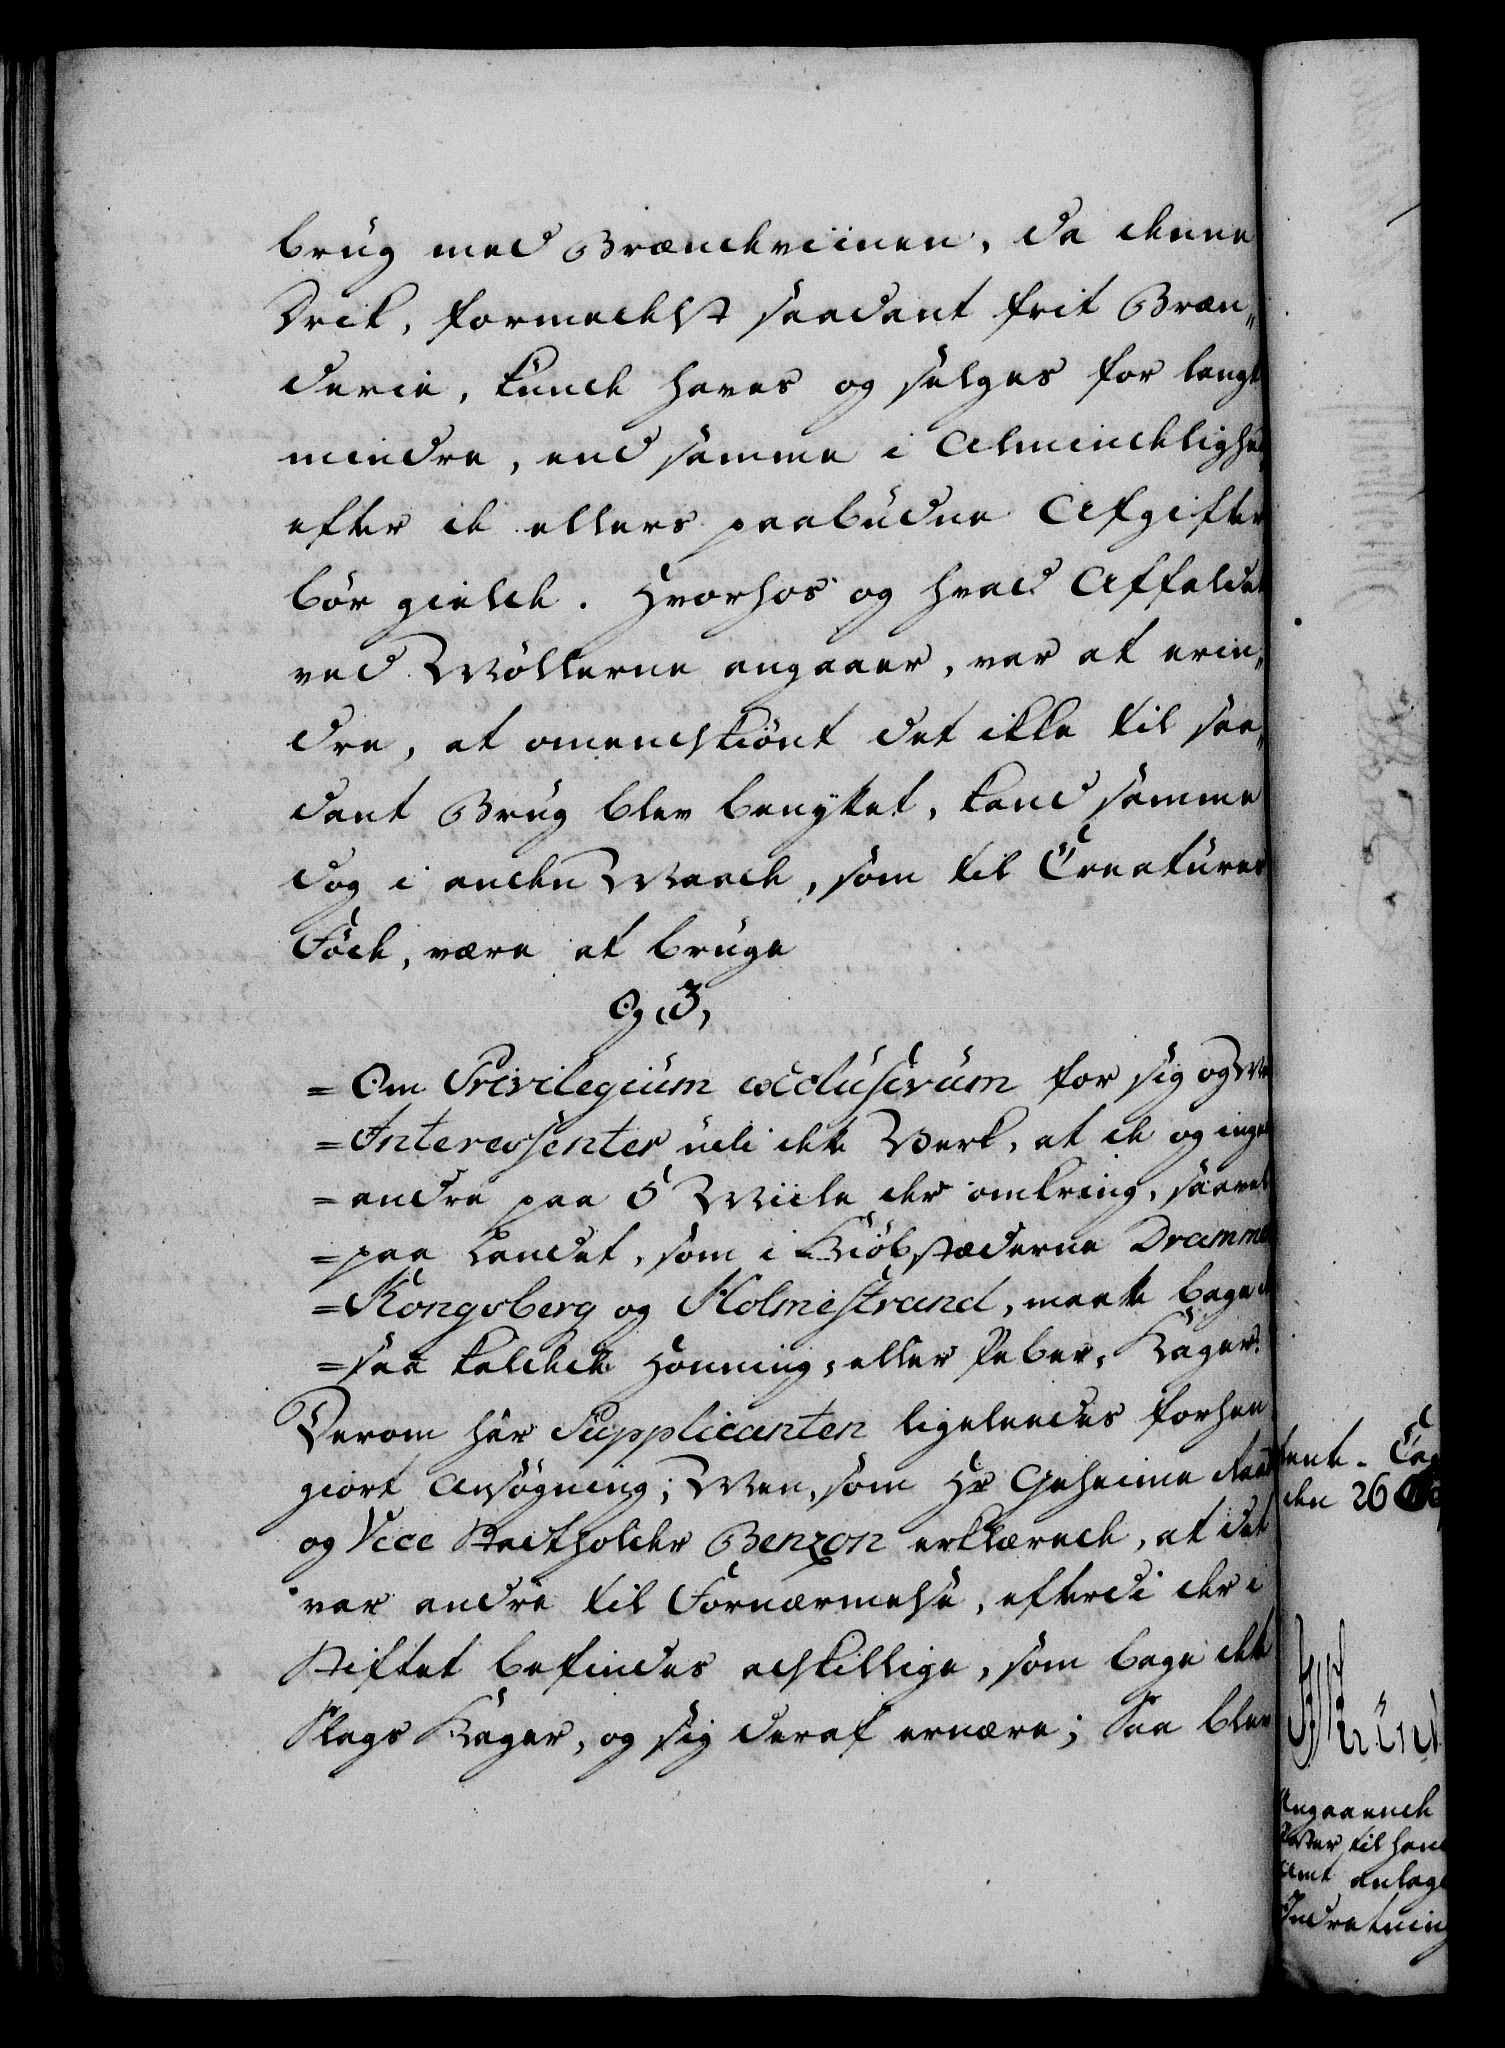 brug med Brændeviinen, da denne
Drik, formedelst saadant frit Bræn„
derie, kunde haves og sælges for langt
mindre, end samme i Almindelighed
efter de ellers paabudne Afgifter
bör gielde. Hvorhos og hvad Affaldet
ved Möllerne angaaer, var at erin„
dre, at omendskiönt det ikke til saa„
dant Brug blev benyttet, kand samme
dog i anden Maade, som til Creaturer
Föde, være at bruge
Og 3,
=Om Privilegium exclusivum for sig og
=Interessenter udi dette Verk, at de og ingen
=andre paa 5 Miile der omkring, saavel
=paa Landet, som i Kiöbstæderne Drammen
=Kongsberg og Holmestrand, maatte bage
=saa kaldede Honning, eller Peber, Kager.
Derom har Supplicanten ligeleedes forhen
giort Ansögning; Men, som Hr Geheime Raad
og Vice Statholder Benzon erklærede, at det
var andre til Fornærmelse, efterdi der i
Stiftet befindes adskillige, som bage dette
Slags Kager, og sig deraf ernære; Saa blev
den 26
Angaaende
til hans
Amt anlagt
Indretning